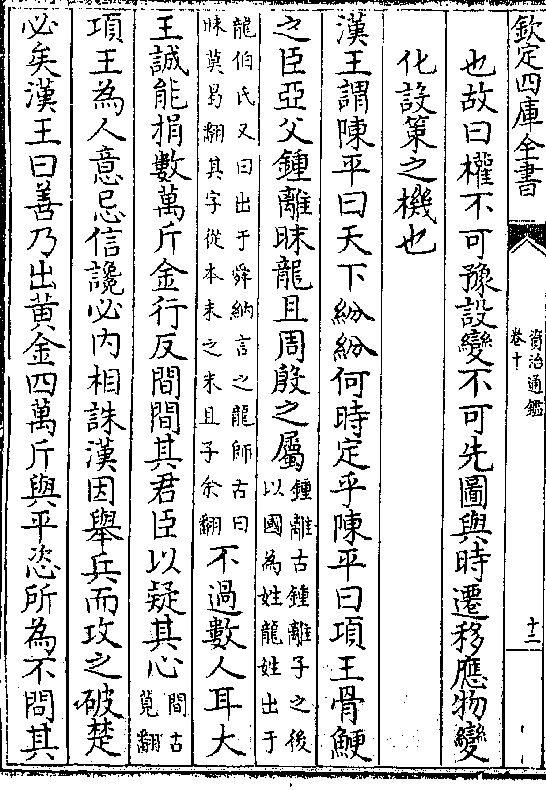 欽定四庫全書
資治通鑑
卷十
十二
也故曰權不可豫設變不可先圖與時遷移應物變
化設策之機也
漢王謂陳平曰天下紛紛何時定乎陳平曰項王骨鯁
之臣亞父鍾離昩龍且周殷之屬鍾離古鍾離子之後
以國為姓龍姓出于
龍伯氏又曰出于舜納言之龍師古曰
昩莫曷翻其字從本末之末且子余翻
不過數人耳大
王誠能捐數萬斤金行反間間其君臣以疑其心間古
莧翻
項王為人意忌信讒必內相誅漢因舉兵而攻之破楚
必矣漢王曰善乃出黄金四萬斤與平恣所為不問其